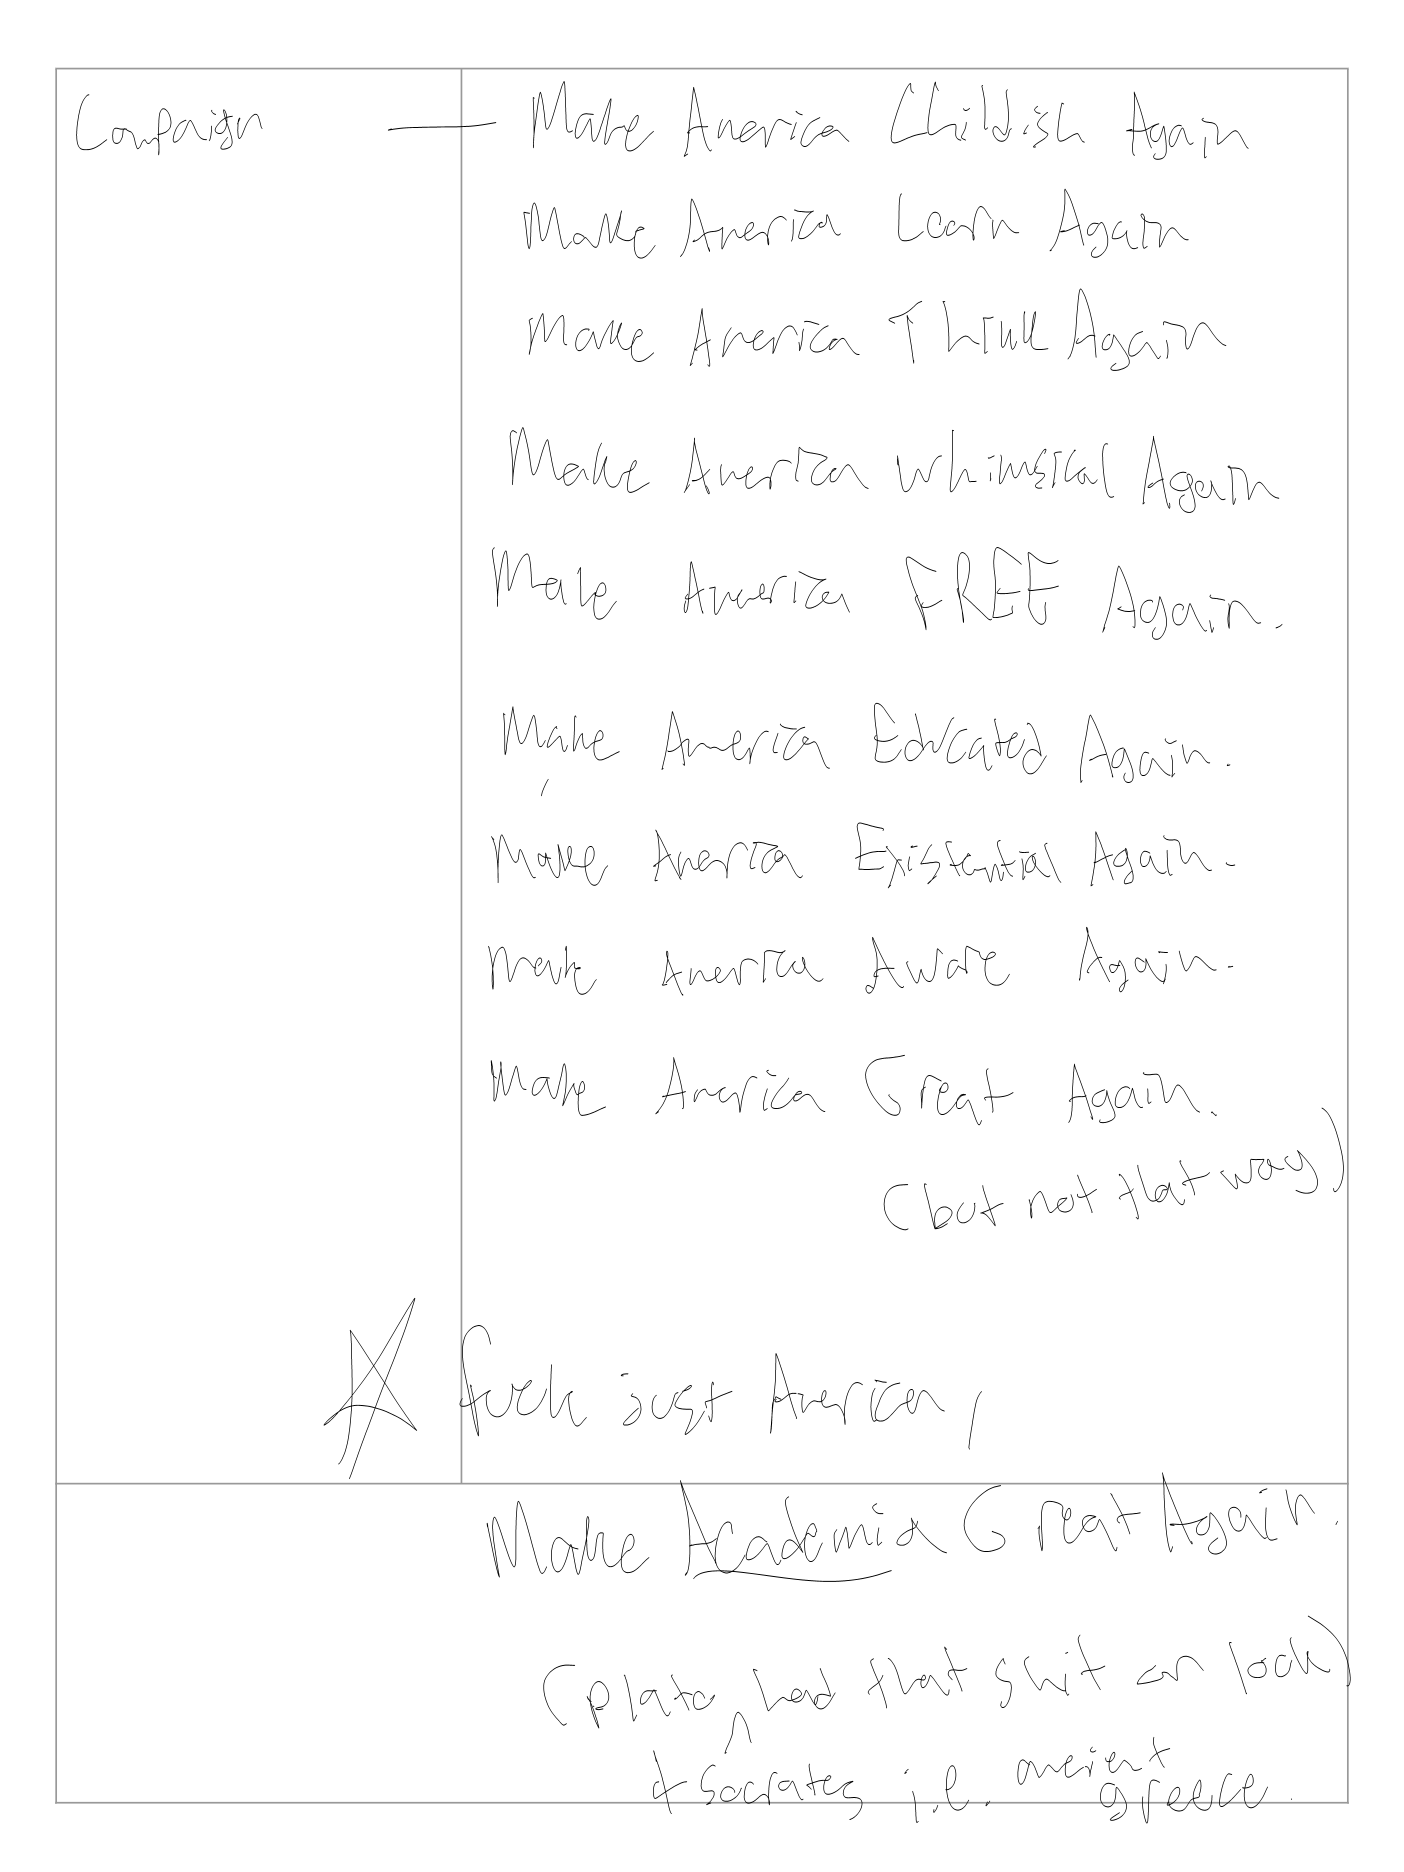 Campaign — Make America Childish Again
Make America Learn Again
Make America Think Again
Make America Whimsical Again
Make America FREE Again.
Make America Educated Again.
Make America Existential Again.
Make America Aware Again.
Make America Great Again.
(but not that way)
☆ fuck just America,
Make Academia Great Again.
(plato ^ had that shit on lock)
+ Socrates i.e. ancient greece.